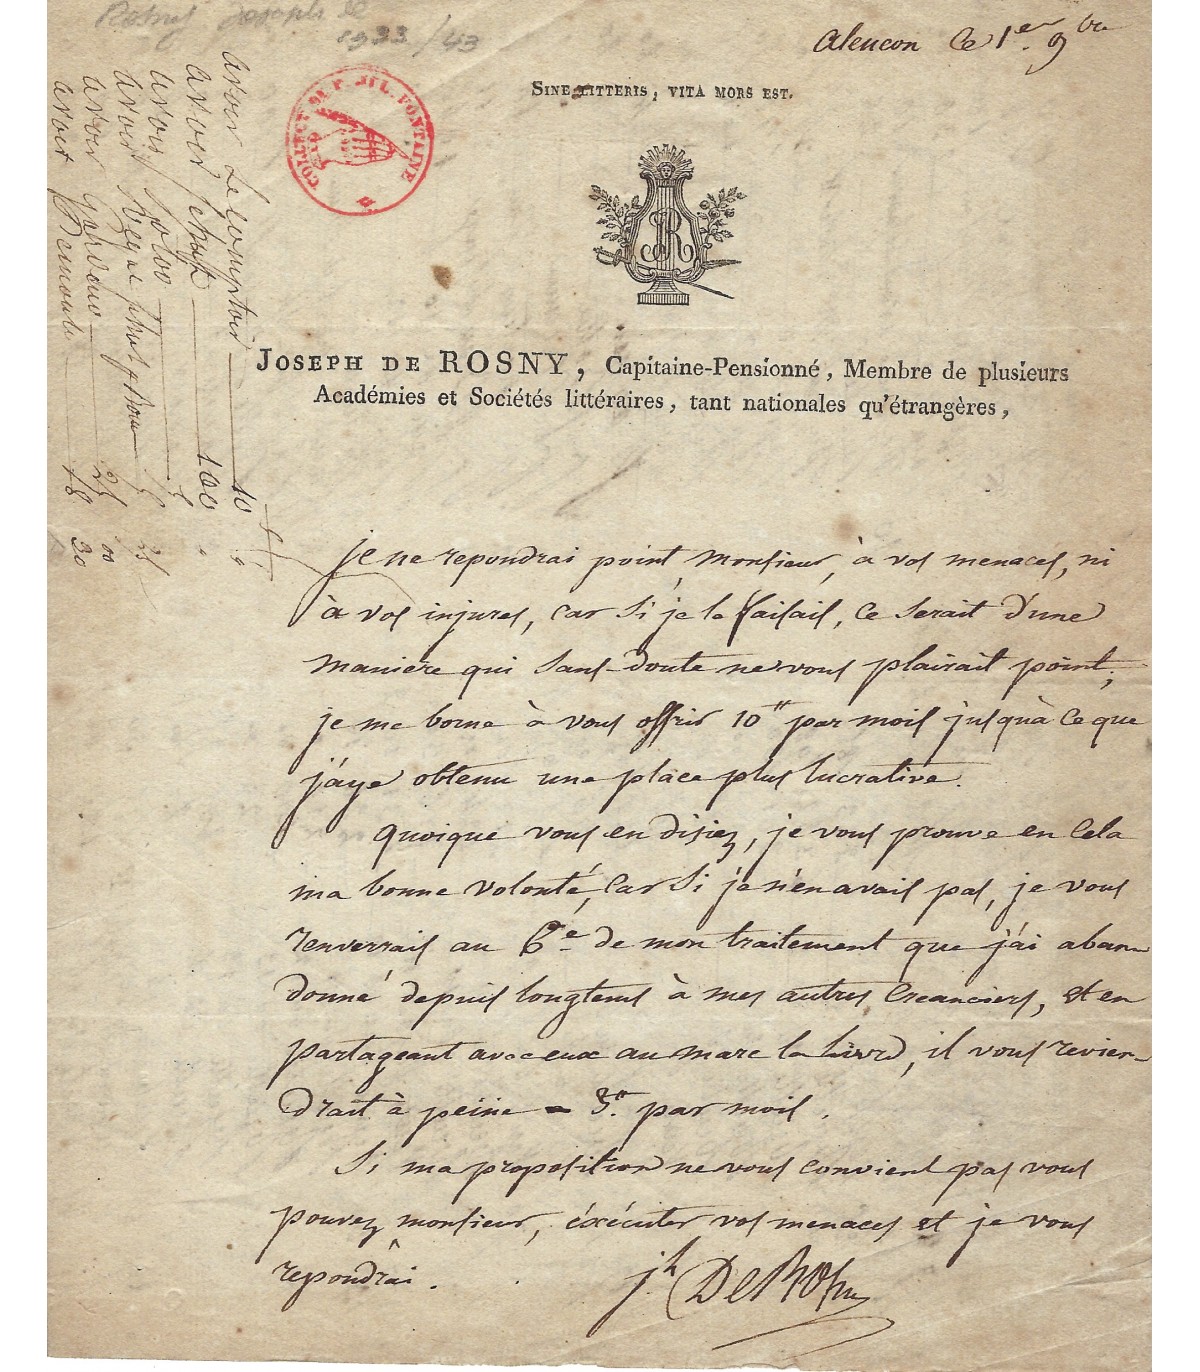 Rosny Joseph de
1933/43
alencon le 1er. 9bre
SINE LITTERIS, VITA MORS EST.
COLLECT. DE P. JUL. FONTAINE
JR
JOSEPH DE ROSNY, Capitaine-Pensionné, Membre de plusieurs
Académies et Sociétés littéraires, tant nationales qu'étrangères,
je ne repondrai point, monsieur, à vos menaces, ni
à vos injures, car si je le faisais, ce serait d'une
maniere qui sans-doute ne vous plairait point;
je me borne à vous offrir 10tt par mois jusqu'à ce que
j'aye obtenu une place plus lucrative.
quoique vous en disiez, je vous prouve en cela
ma bonne volonté, car si je n'en avais pas, je vous
renverrais au 6e. de mon traitement que j'ai aban-
donné depuis longtems à mes autres creanciers, et en
partageant avec eux au marc la livre, il vous revien-
drait à peine 3tt. par mois.
Si ma proposition ne vous convient pas vous
pouvez, monsieur, éxécuter vos menaces et je vous
repondrai.
jh De Rosny
avoir le comptoir 10
avoir 100
avoir
avoir 25
avoir 25 00
avoir 18 30